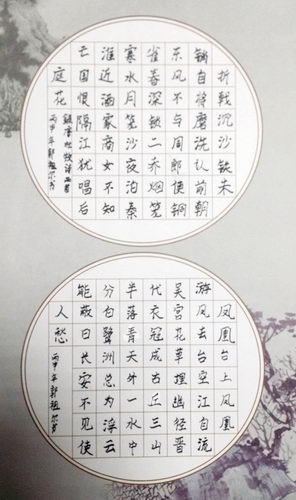 折戟沉沙铁未
销自将磨洗认前朝
东风不与周郎便铜
雀春深锁二乔烟笼
寒水月笼沙夜泊秦
淮近酒家商女不知
亡国恨隔江犹唱后
庭花
唐杜牧诗两首
丙申年郭祖尔书
凤凰台上凤凰
游凤去台空江自流
吴宫花草埋幽径晋
代衣冠成古丘三山
半落青天外一水中
分白鹭洲总为浮云
能蔽日长安不见使
人愁
丙申年郭祖尔书